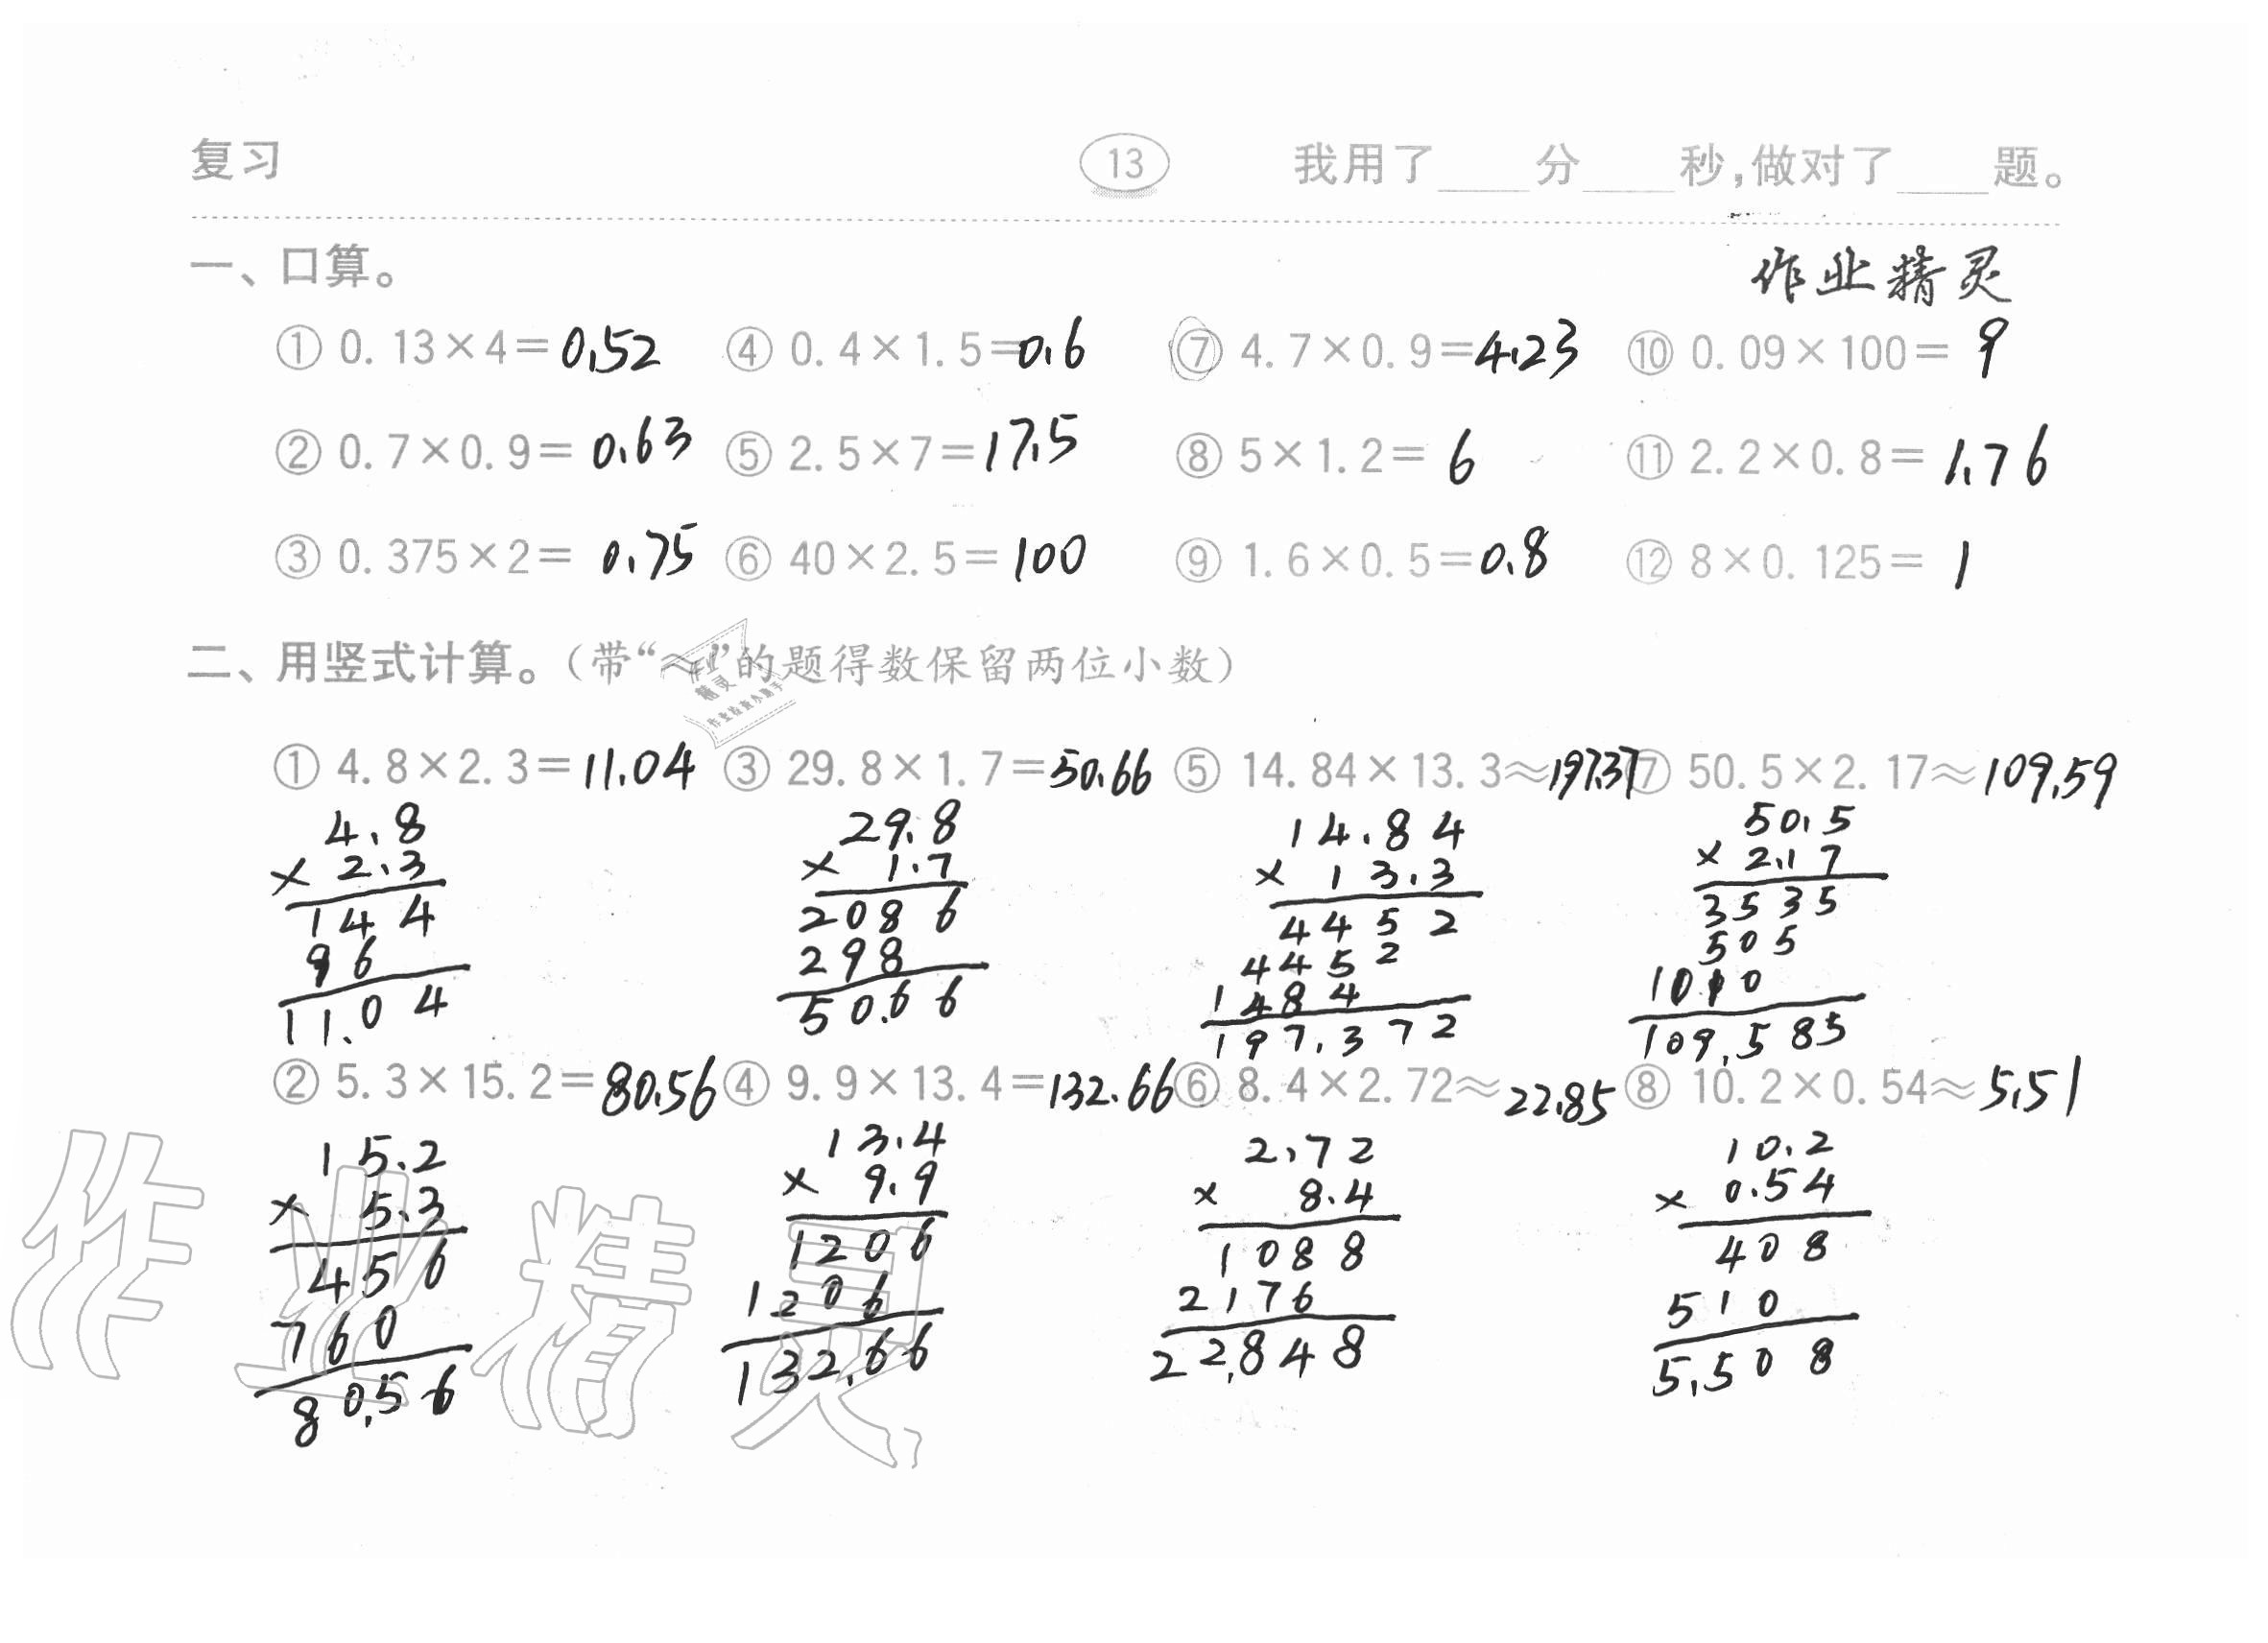 复习 13 我用了____分____秒,做对了____题。
一、口算。 作业精灵
① 0.13×4=0.52 ④ 0.4×1.5=0.6 ⑦ 4.7×0.9=4.23 ⑩ 0.09×100=9
② 0.7×0.9=0.63 ⑤ 2.5×7=17.5 ⑧ 5×1.2=6 ⑪ 2.2×0.8=1.76
③ 0.375×2=0.75 ⑥ 40×2.5=100 ⑨ 1.6×0.5=0.8 ⑫ 8×0.125=1
二、用竖式计算。(带“≈”的题得数保留两位小数)
① 4.8×2.3=11.04 ③ 29.8×1.7=50.66 ⑤ 14.84×13.3≈197.37 ⑦ 50.5×2.17≈109.59
4.8 29.8 14.84 50.5
×2.3 ×1.7 ×13.3 ×2.17
144 2086 4452 3535
96 298 4452 505
11.04 50.66 1484 1010
197.372 109.585
② 5.3×15.2=80.56 ④ 9.9×13.4=132.66 ⑥ 8.4×2.72≈22.85 ⑧ 10.2×0.54≈5.51
15.2 13.4 2.72 10.2
×5.3 ×9.9 ×8.4 ×0.54
456 1206 1088 408
760 1206 2176 510
80.56 132.66 22.848 5.508
作业精灵